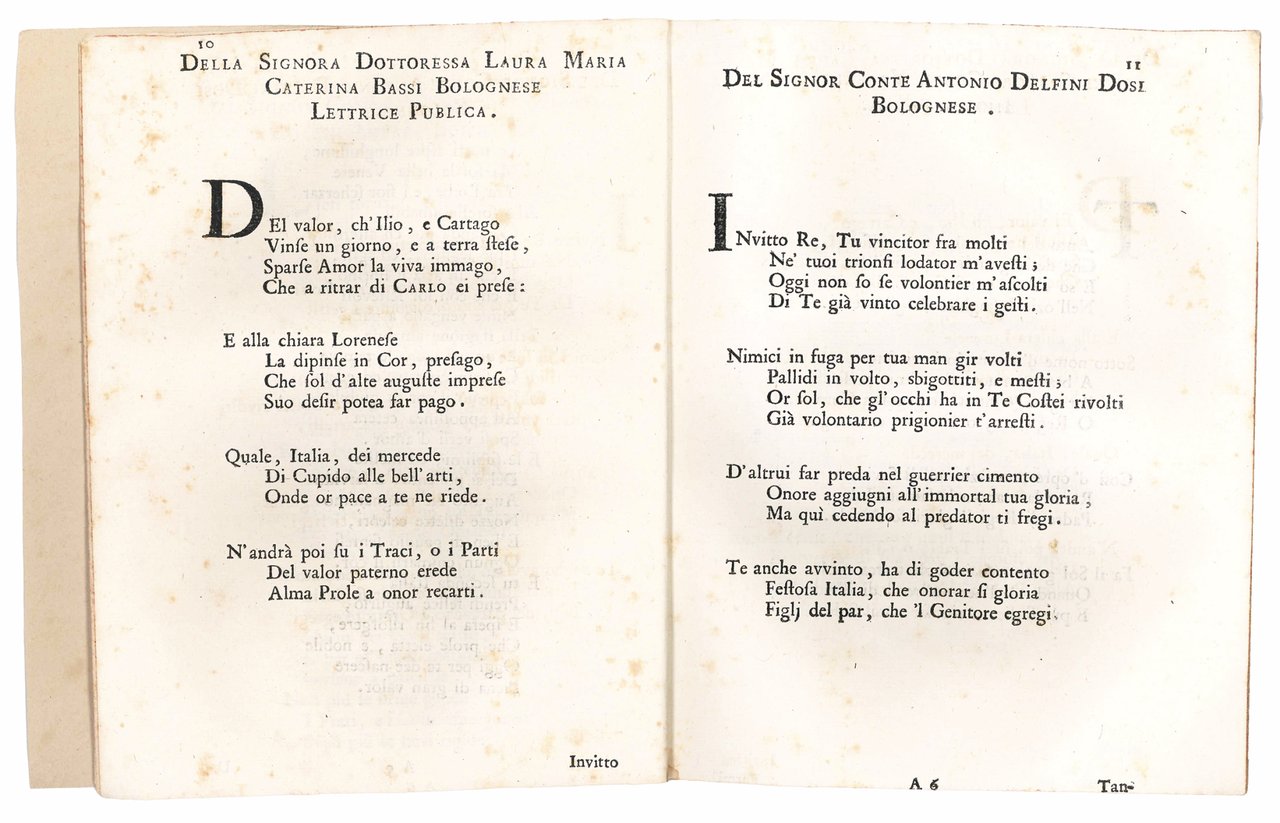 10
DELLA SIGNORA DOTTORESSA LAURA MARIA
CATERINA BASSI BOLOGNESE
LETTRICE PUBLICA.
DEl valor, ch'Ilio, e Cartago
Vinſe un giorno, e a terra ſteſe,
Sparſe Amor la viva immago,
Che a ritrar di CARLO ei preſe:
E alla chiara Loreneſe
La dipinſe in Cor, preſago,
Che ſol d'alte auguſte impreſe
Suo deſir potea far pago.
Quale, Italia, dei mercede
Di Cupido alle bell'arti,
Onde or pace a te ne riede.
N'andrà poi ſu i Traci, o i Parti
Del valor paterno erede
Alma Prole a onor recarti.
Invitto
11
DEL SIGNOR CONTE ANTONIO DELFINI DOSI
BOLOGNESE.
INvitto Re, Tu vincitor fra molti
Ne' tuoi trionfi lodator m'aveſti;
Oggi non ſo ſe volontier m'aſcolti
Di Te già vinto celebrare i geſti.
Nimici in fuga per tua man gir volti
Pallidi in volto, sbigottiti, e meſti;
Or ſol, che gl'occhi ha in Te Coſtei rivolti
Già volontario prigionier t'arreſti.
D'altrui far preda nel guerrier cimento
Onore aggiugni all'immortal tua gloria,
Ma quì cedendo al predator ti fregi.
Te anche avvinto, ha di goder contento
Feſtoſa Italia, che onorar ſi gloria
Figlj del par, che 'l Genitore egregi.
A 6
Tan-